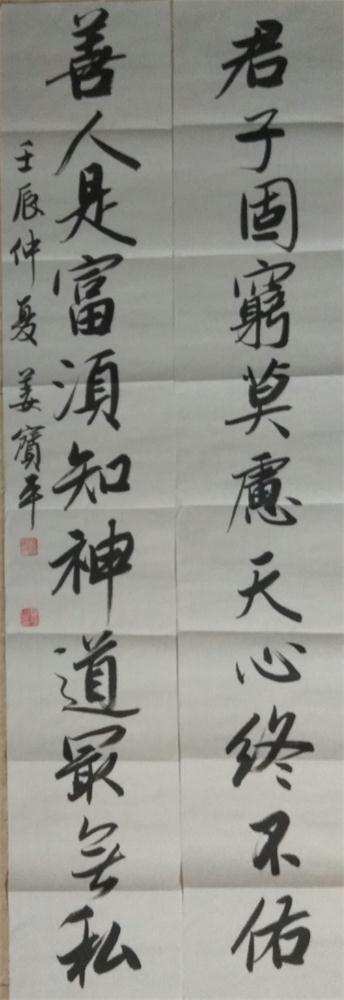 君子固窮莫慮天心終不佑
善人是富須知神道最無私
壬辰仲夏姜寶平